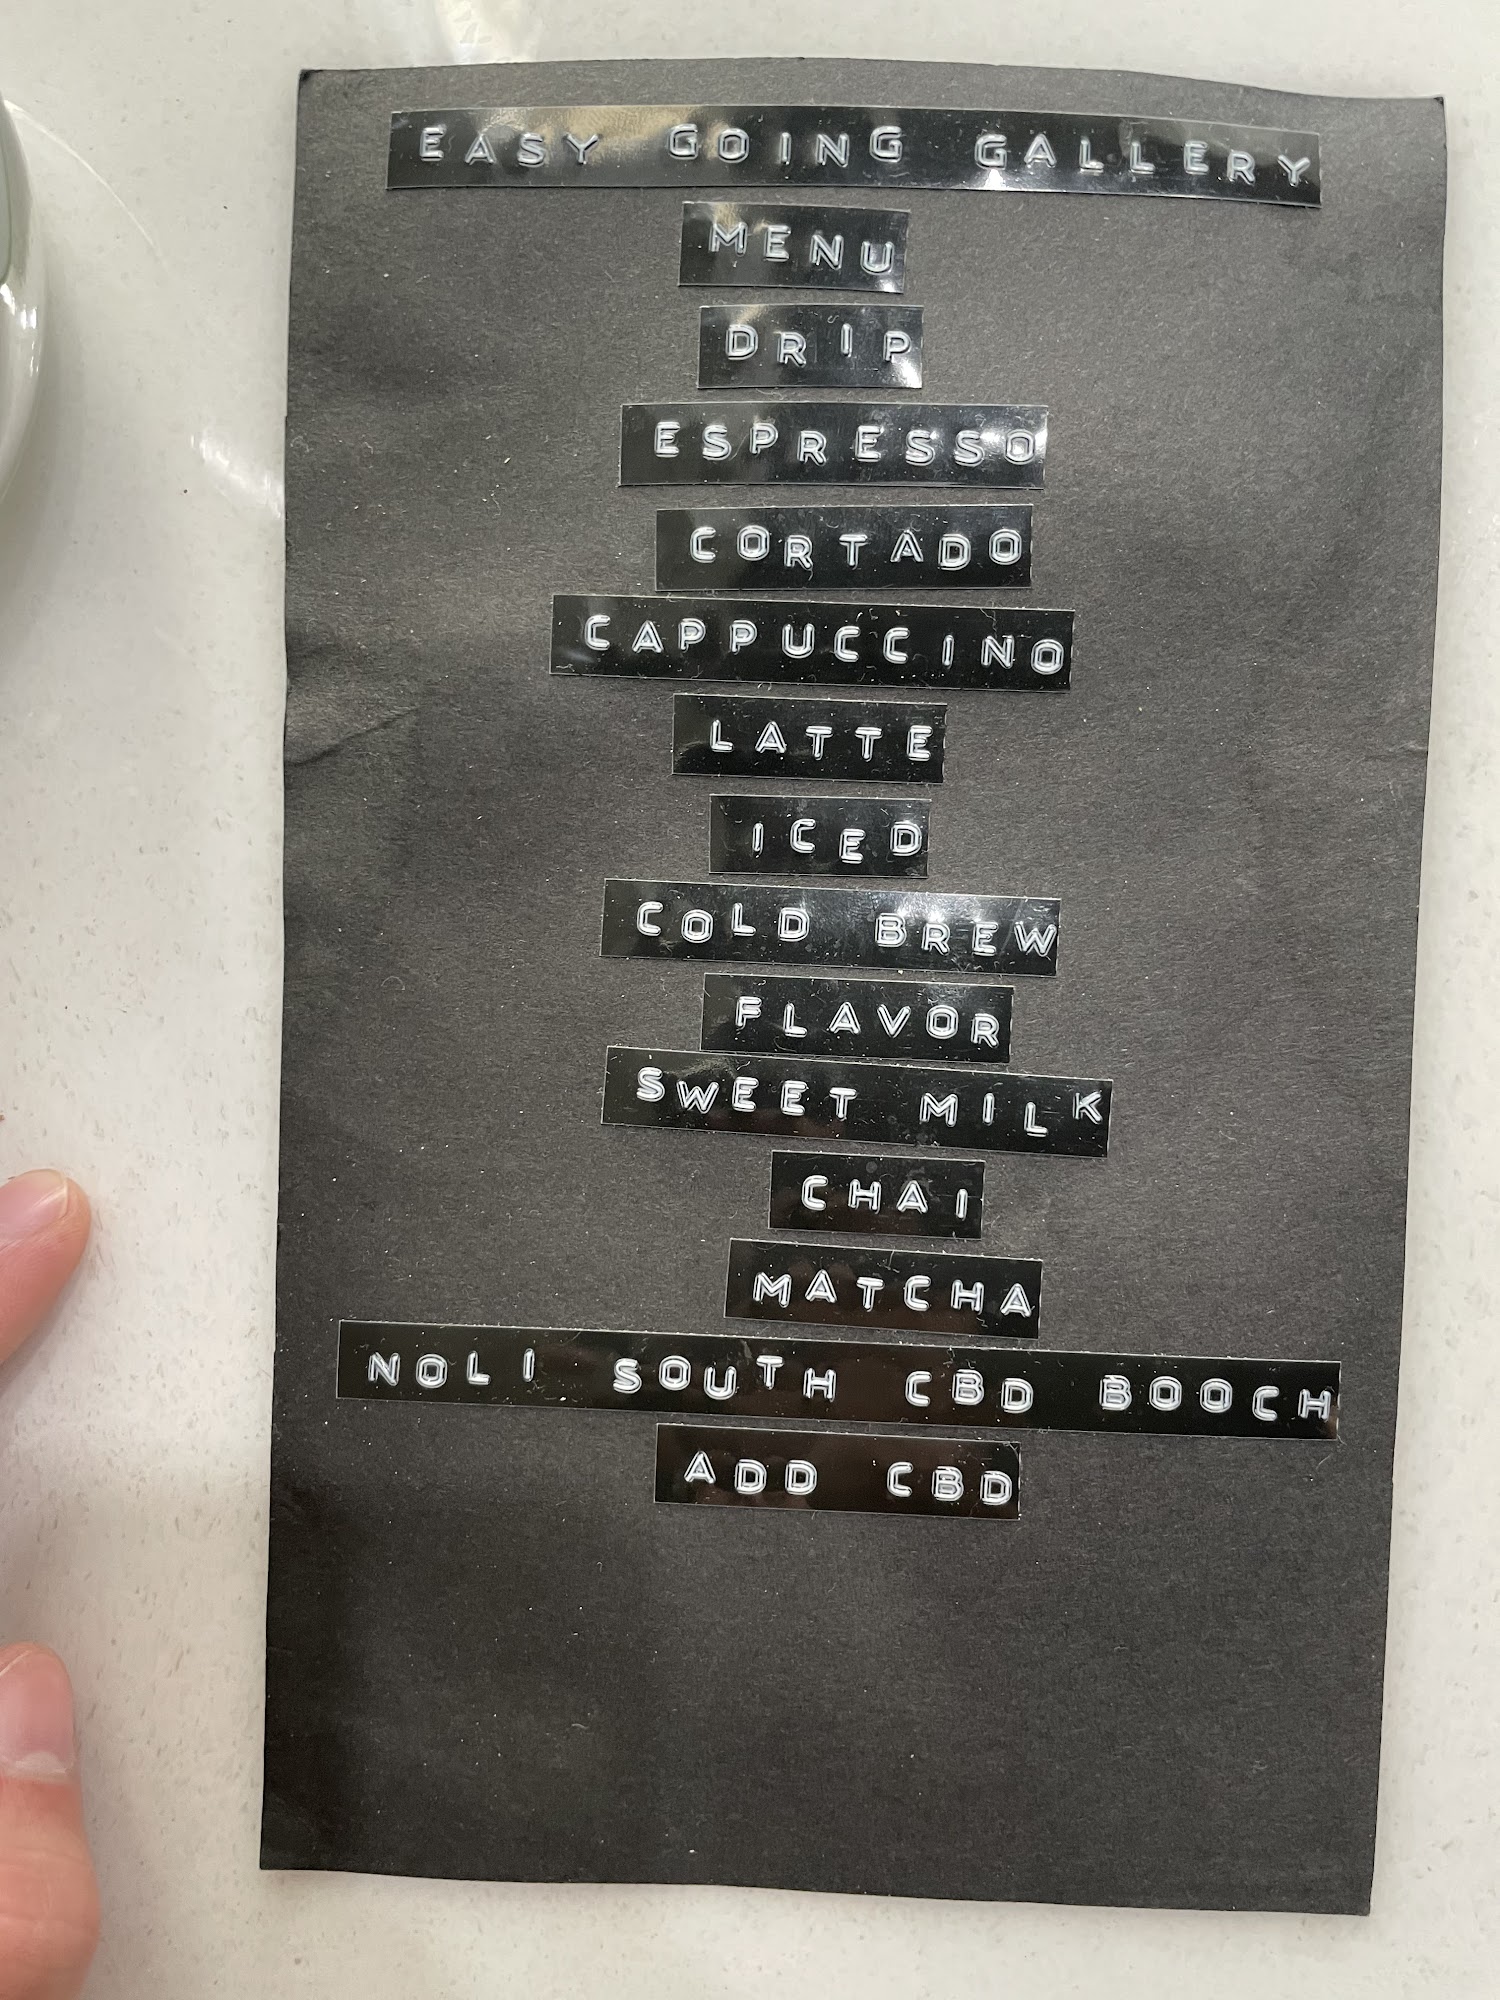 EASY GOING GALLERY
MENU
DRIP
ESPRESSO
CORTADO
CAPPUCCINO
LATTE
ICED
COLD BREW
FLAVOR
SWEET MILK
CHAI
MATCHA
NOLI SOUTH CBD BOOCH
ADD CBD